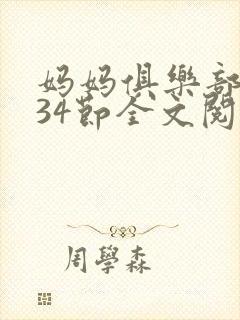 妈妈俱樂部
34節全文閱
周學森